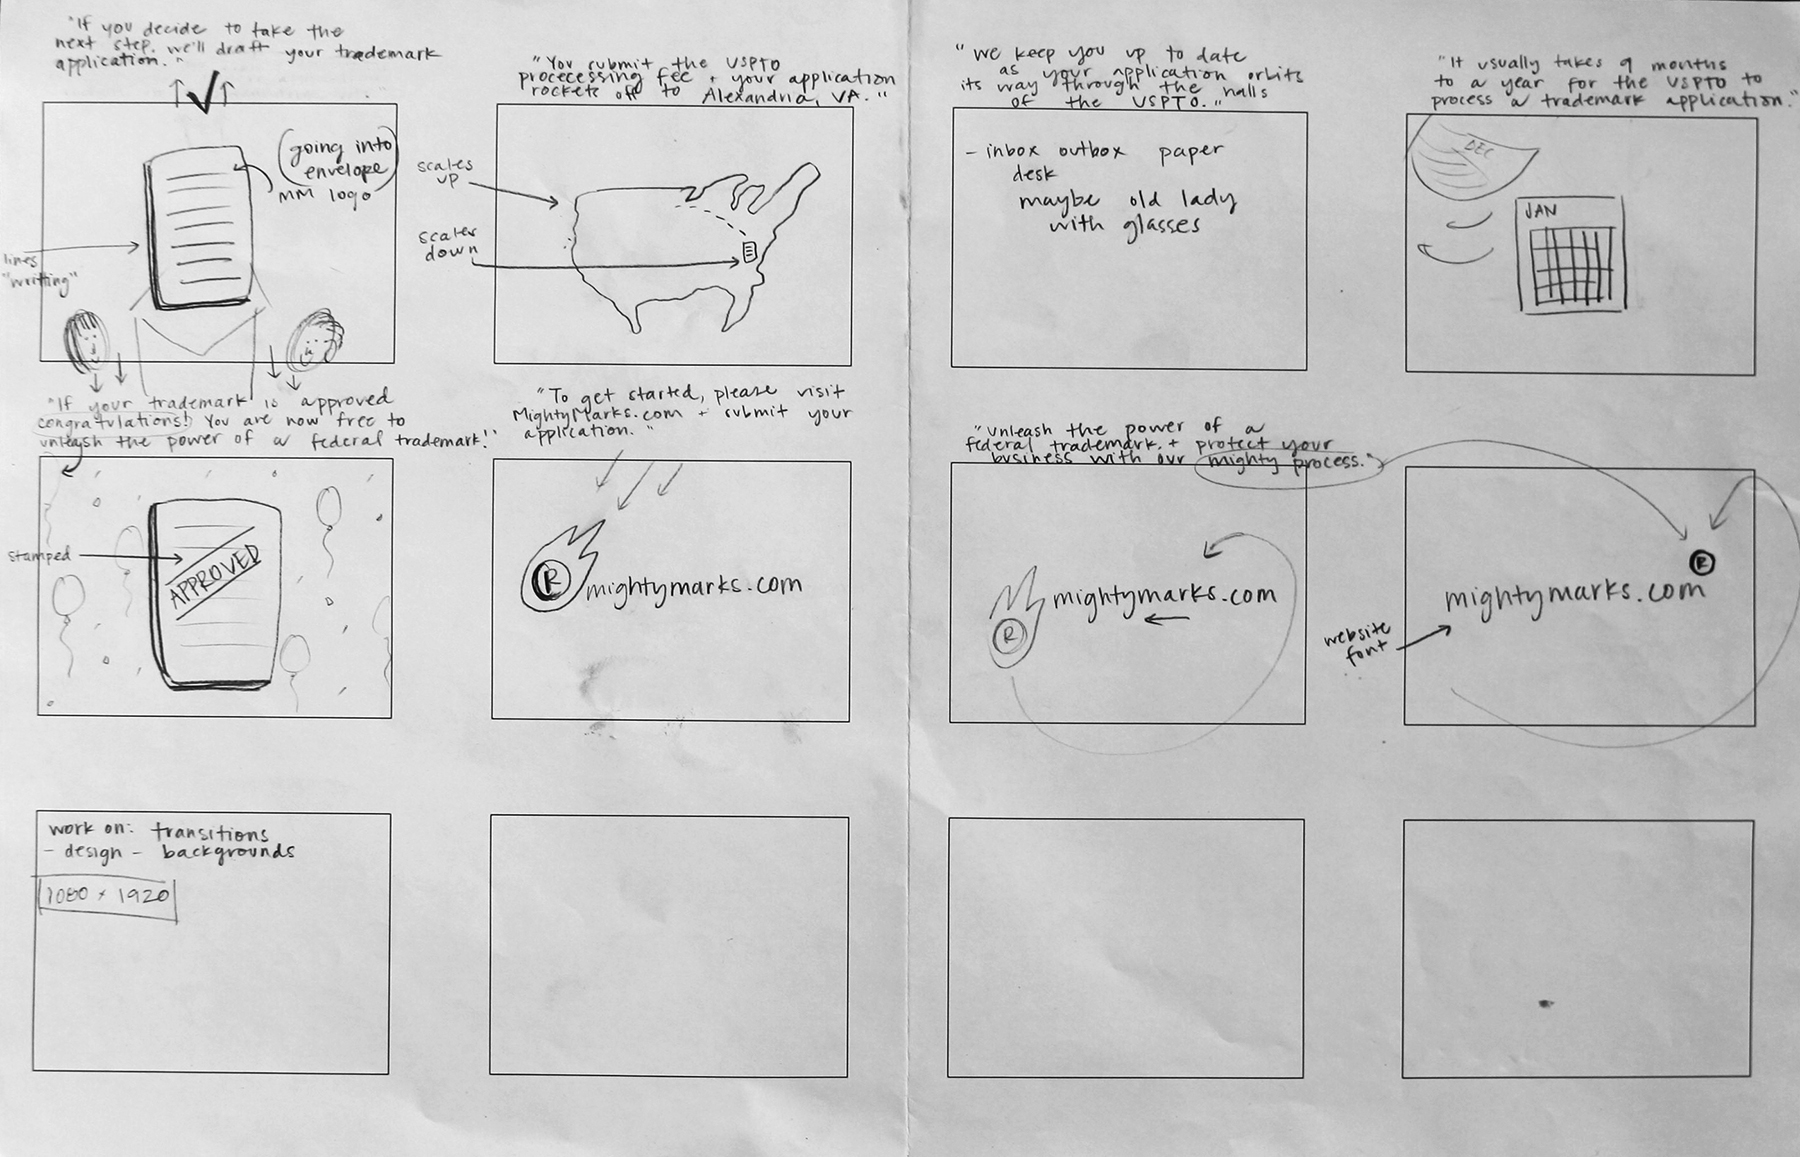 "If you decide to take the
next step, we'll draft your trademark
application."
(going into
envelope)
MM logo
lines
"writting"
"You submit the USPTO
procecessing fee + your application
rockets off to Alexandria, VA."
scales
up
scales
down
"we keep you up to date
as your application orbits
its way through the halls
of the USPTO."
- inbox outbox paper
desk
maybe old lady
with glasses
"It usually takes 9 months
to a year for the USPTO to
process a trademark application."
DEC
JAN
"If your trademark is approved
congratulations! You are now free to
unleash the power of a federal trademark!"
stamped
APPROVED
"To get started, please visit
MightyMarks.com + submit your
application."
R
mightymarks.com
"Unleash the power of a
federal trademark + protect your
business with our mighty process."
mightymarks.com
R
R
mightymarks.com
website
font
work on: transitions
- design - backgrounds
1080 x 1920